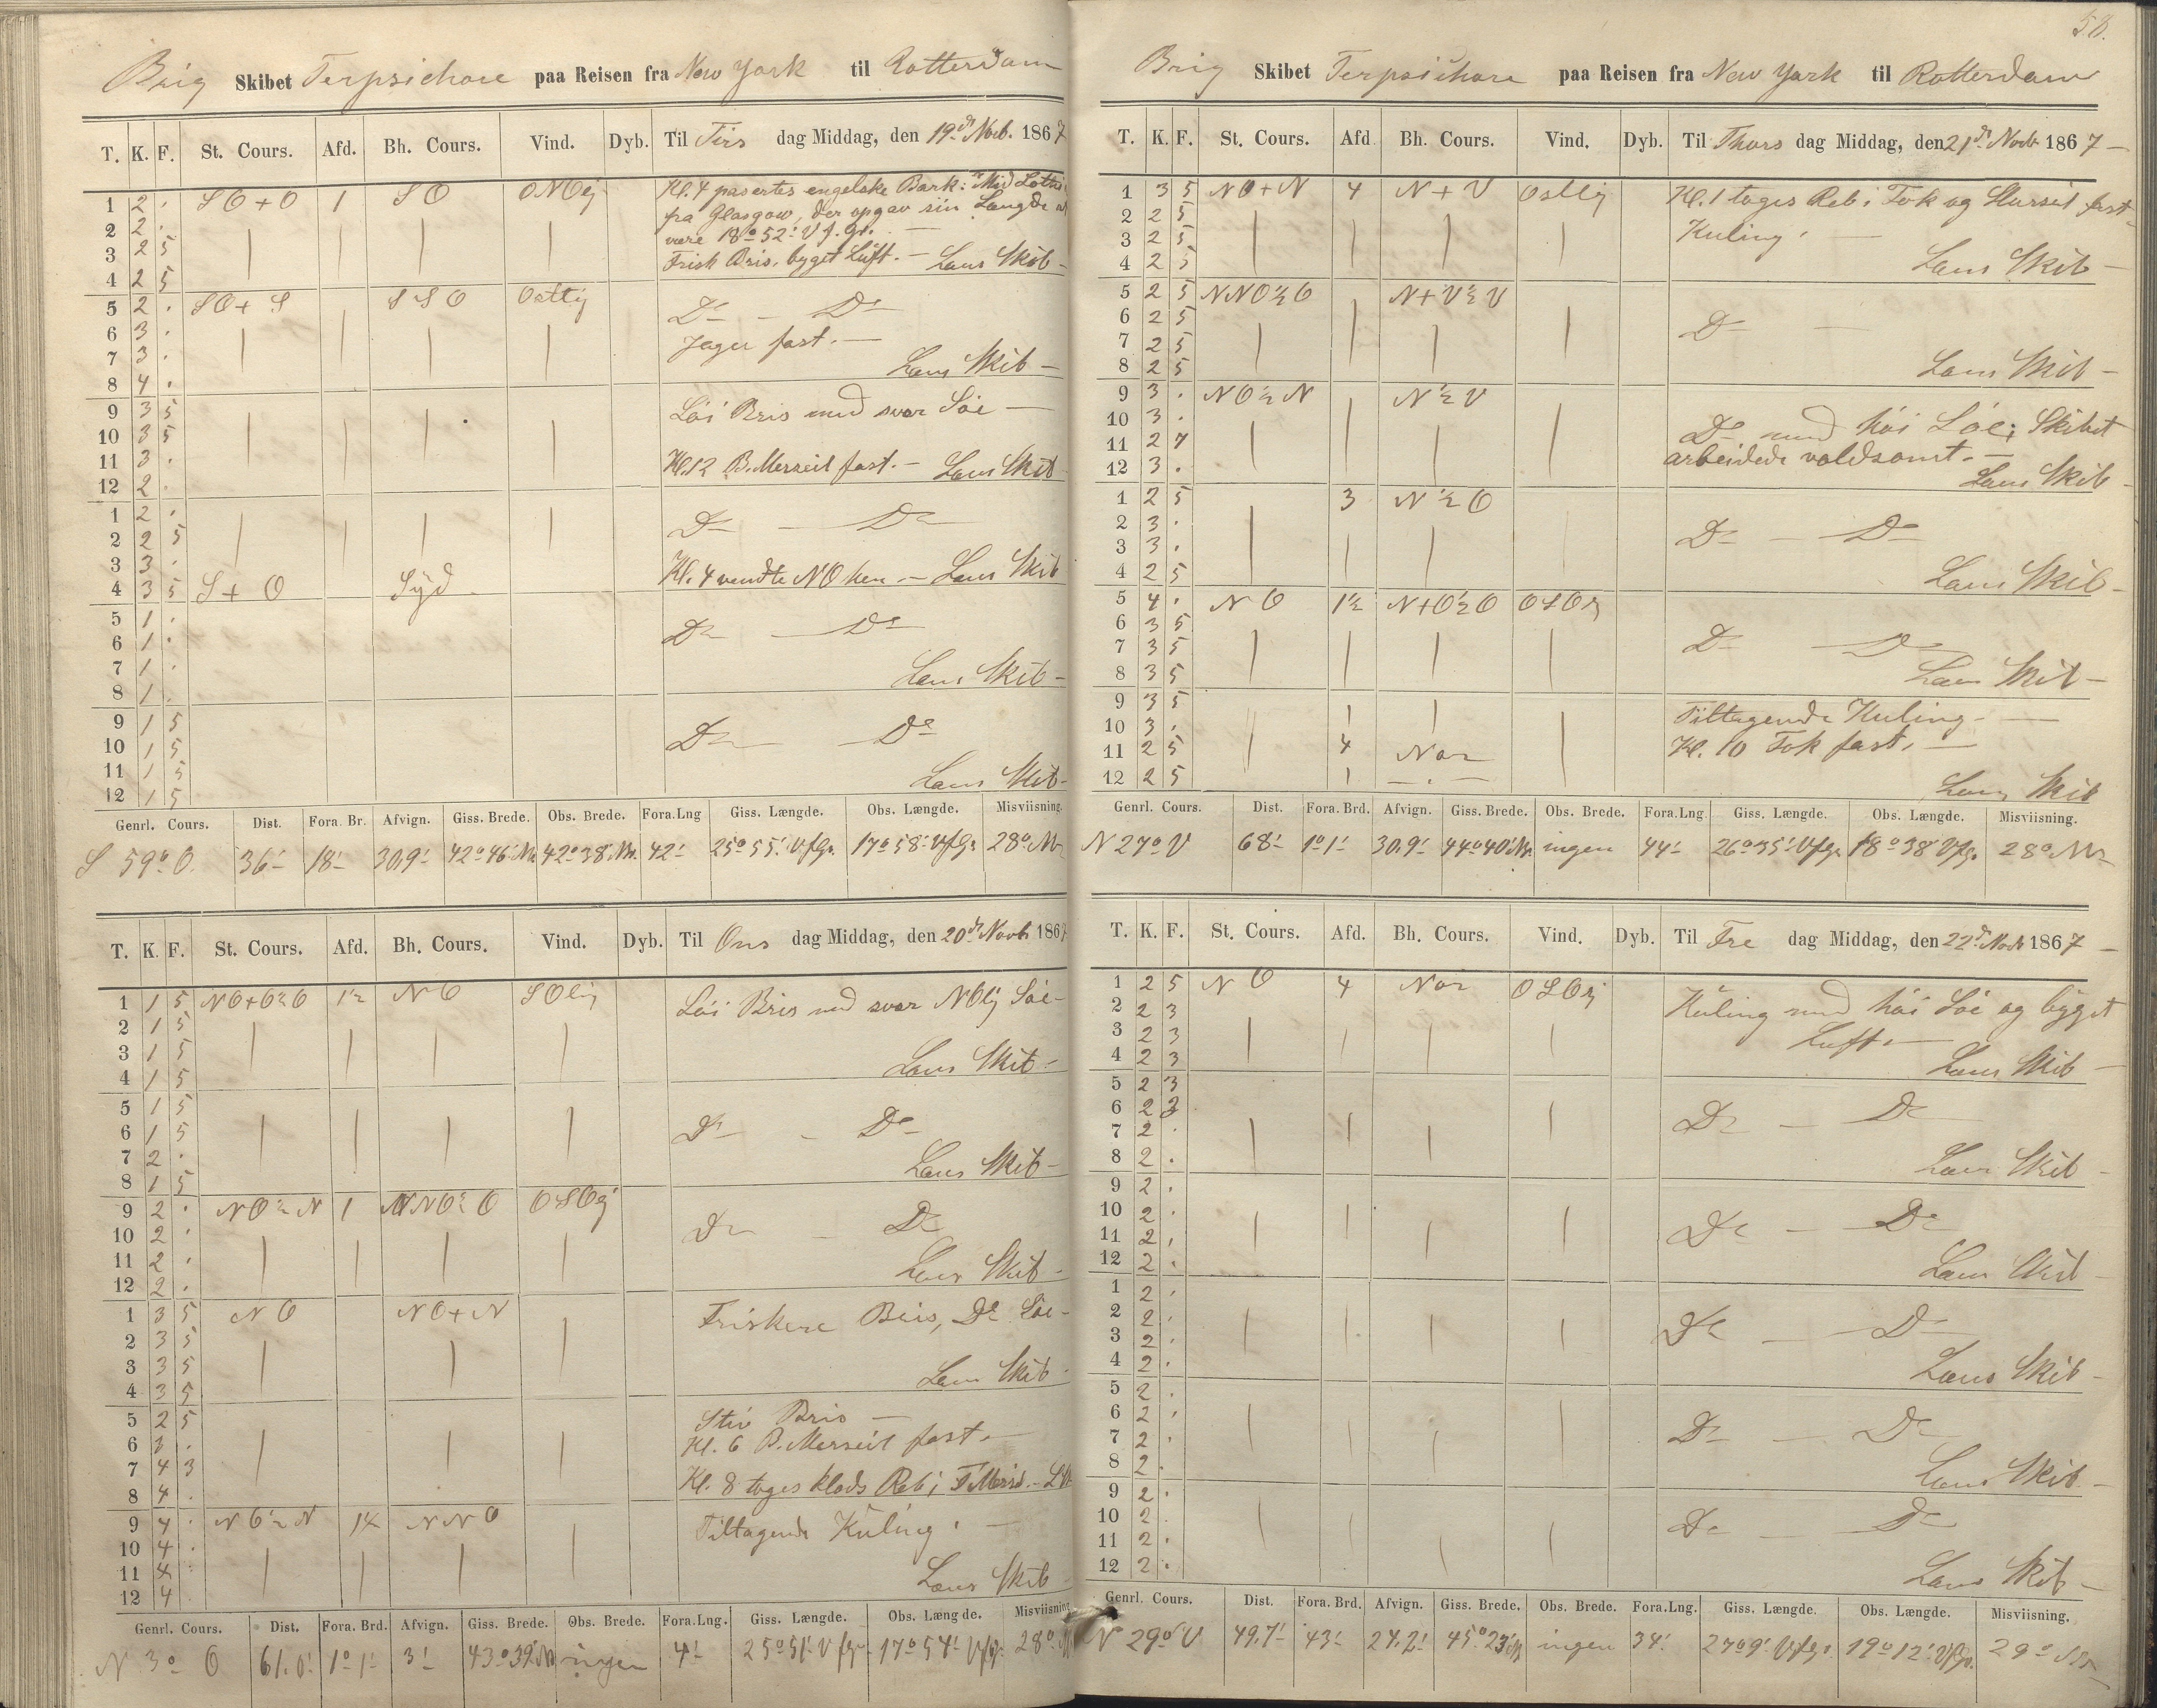 Brig Skibet Terpsichore paa Reisen fra New York til Rotterdam
T. K. F. St. Cours. Afd. Bh. Cours. Vind. Dyb. Til Tirs dag Middag, den 19de Novb. 1867
1 2 . SO+O 1 SO ONOlig Kl. 4 pasertes engelske Bark: "Mid Lothi
2 2 . fra Glasgow, der opgav sin Længde at
3 2 5 være 18° 52' V f. Gr. —
4 2 5 Frisk Bris, byget Luft. — Læns Skib —
5 2 . SO+S SSO Ostlig Do — Do
6 3 .
7 3 . Jager fast. —
8 4 . Læns Skib —
9 3 5 Löi Bris med svær Söe —
10 3 5
11 3 .
12 2 . Kl. 12 B. Merseil fast. — Læns Skib
1 2 . Do — Do
2 2 5
3 3 .
4 3 5 S+O Syd Kl. 4 vendte NO hen. — Læns Skib
5 1 . Do — Do
6 1 .
7 1 .
8 1 . Læns Skib —
9 1 5 Do — Do
10 1 5
11 1 5
12 1 5 Læns Skib —
Genrl. Cours. Dist. Fora. Br. Afvign. Giss. Brede. Obs. Brede. Fora.Lng Giss. Længde. Obs. Længde. Misviisning.
S 59° O. 36' 18' 30,9' 42° 46' N. 42° 38' N. 42' 25° 55' V f Gr. 17° 58' V f Gr. 28° N
T. K. F. St. Cours. Afd. Bh. Cours. Vind. Dyb. Til Ons dag Middag, den 20de Novb. 1867
1 1 5 NO+O½O 1½ NO SOlig Löi Bris med svær NOlig Söe —
2 1 5
3 1 5
4 1 5 Læns Skib —
5 1 5 Do — Do
6 1 5
7 2 .
8 1 5 Læns Skib —
9 2 . NO½N 1 NNO½O OSOlig Do — Do
10 2 .
11 2 .
12 2 . Læns Skib —
1 3 5 NO NO+N Friskere Bris, Do Söe —
2 3 5
3 3 5
4 3 5 Læns Skib
5 2 5 Stiv Bris —
6 3 . Kl. 6 B. Merseil fast. —
7 4 3
8 4 . Kl. 8 toges klods Reb i F Mersl. — L Sk
9 4 . NO½N 1¼ NNO Tiltagende Kuling. —
10 4 .
11 4 .
12 4 Læns Skib
Genrl. Cours. Dist. Fora. Brd. Afvign. Giss. Brede. Obs. Brede. Fora.Lng. Giss. Længde. Obs. Længde. Misviisning
N 3° O 61.0' 1° 1' 3' 43° 39' N ingen 4' 25° 51' V f Gr. 17° 54' V f Gr. 28° N
58.
Brig Skibet Terpsichore paa Reisen fra New York til Rotterdam
T. K. F. St. Cours. Afd Bh. Cours. Vind. Dyb. Til Thors dag Middag, den 21de Novb 1867 —
1 3 5 NO+N 4 N+V Ostlig Kl. 1 toges Reb i Fok og Storseil fast —
2 2 5
3 2 5 Kuling. —
4 2 5 Læns Skib —
5 2 5 NNO½O N+V½V
6 2 5 Do —
7 2 5
8 2 5 Læns Skib —
9 3 . NO½N N½V
10 3 . Do med höi Söe; Skibet
11 2 7 arbeidede voldsomt. —
12 3 . Læns Skib —
1 2 5 3 N½O
2 3 . Do — Do
3 3 .
4 2 5 Læns Skib —
5 4 . NO 1½ N+O½O OSOlig
6 3 5
7 3 5 Do — Do
8 3 5 Læns Skib —
9 3 5 Tiltagende Kuling. —
10 3 . Kl. 10 Fok fast. —
11 2 5 4 Nor
12 2 5 Læns Skib
Genrl. Cours. Dist. Fora. Brd. Afvign. Giss. Brede. Obs. Brede. Fora.Lng. Giss. Længde. Obs. Længde. Misviisning.
N 27° V 68' 1° 1' 30.9' 44° 40' N. ingen 44' 26° 35' V f Gr. 18° 38' V f Gr. 28° N
T. K. F. St. Cours. Afd. Bh. Cours. Vind. Dyb. Til Fre dag Middag, den 22de Novb 1867 —
1 2 5 NO 4 Nor OSOlig Kuling med höi Söe og byget
2 2 3
3 2 3 Luft. —
4 2 3 Læns Skib —
5 2 3
6 2 3 Do — Do
7 2 .
8 2 . Læns Skib —
9 2 .
10 2 . Do — Do
11 2 .
12 2 . Læns Skib —
1 2 .
2 2 . Do — Do
3 2 .
4 2 . Læns Skib —
5 2 .
6 2 . Do — Do
7 2 .
8 2 . Læns Skib —
9 2 .
10 2 . Do — Do
11 2 .
12 2 . Læns Skib —
Genrl. Cours. Dist. Fora. Brd. Afvign. Giss. Brede. Obs. Brede. Fora.Lng. Giss. Længde. Obs. Længde. Misviisning.
N 29° V 49.7' 43' 24.2' 45° 23' N ingen 34' 27° 9' V f Gr. 19° 12' V f Gr. 29° N